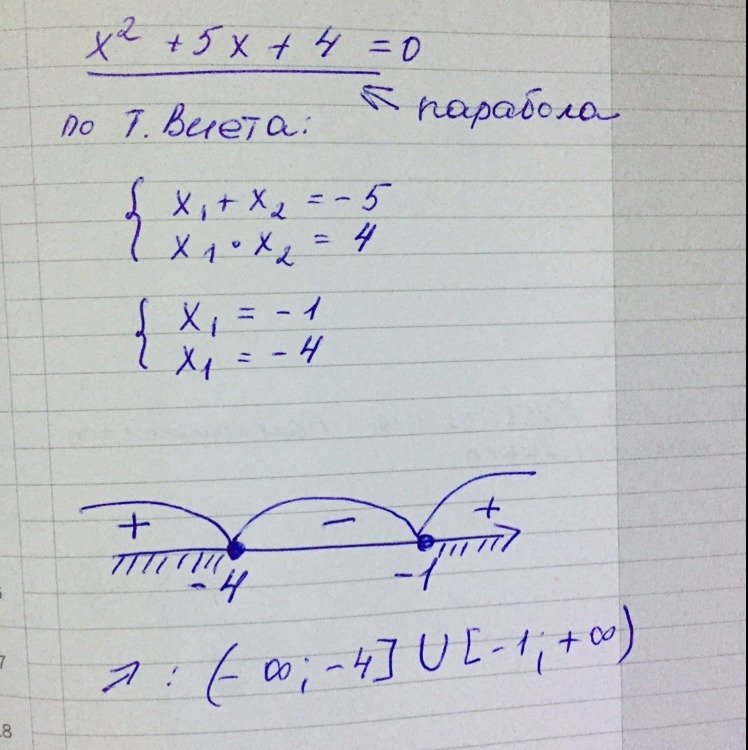 x² + 5x + 4 = 0
← парабола
по Т. Виета:
{ x₁ + x₂ = -5
x₁ · x₂ = 4
{ x₁ = -1
x₁ = -4
+ - +
-4 -1
↗ : (-∞; -4] ∪ [-1; +∞)